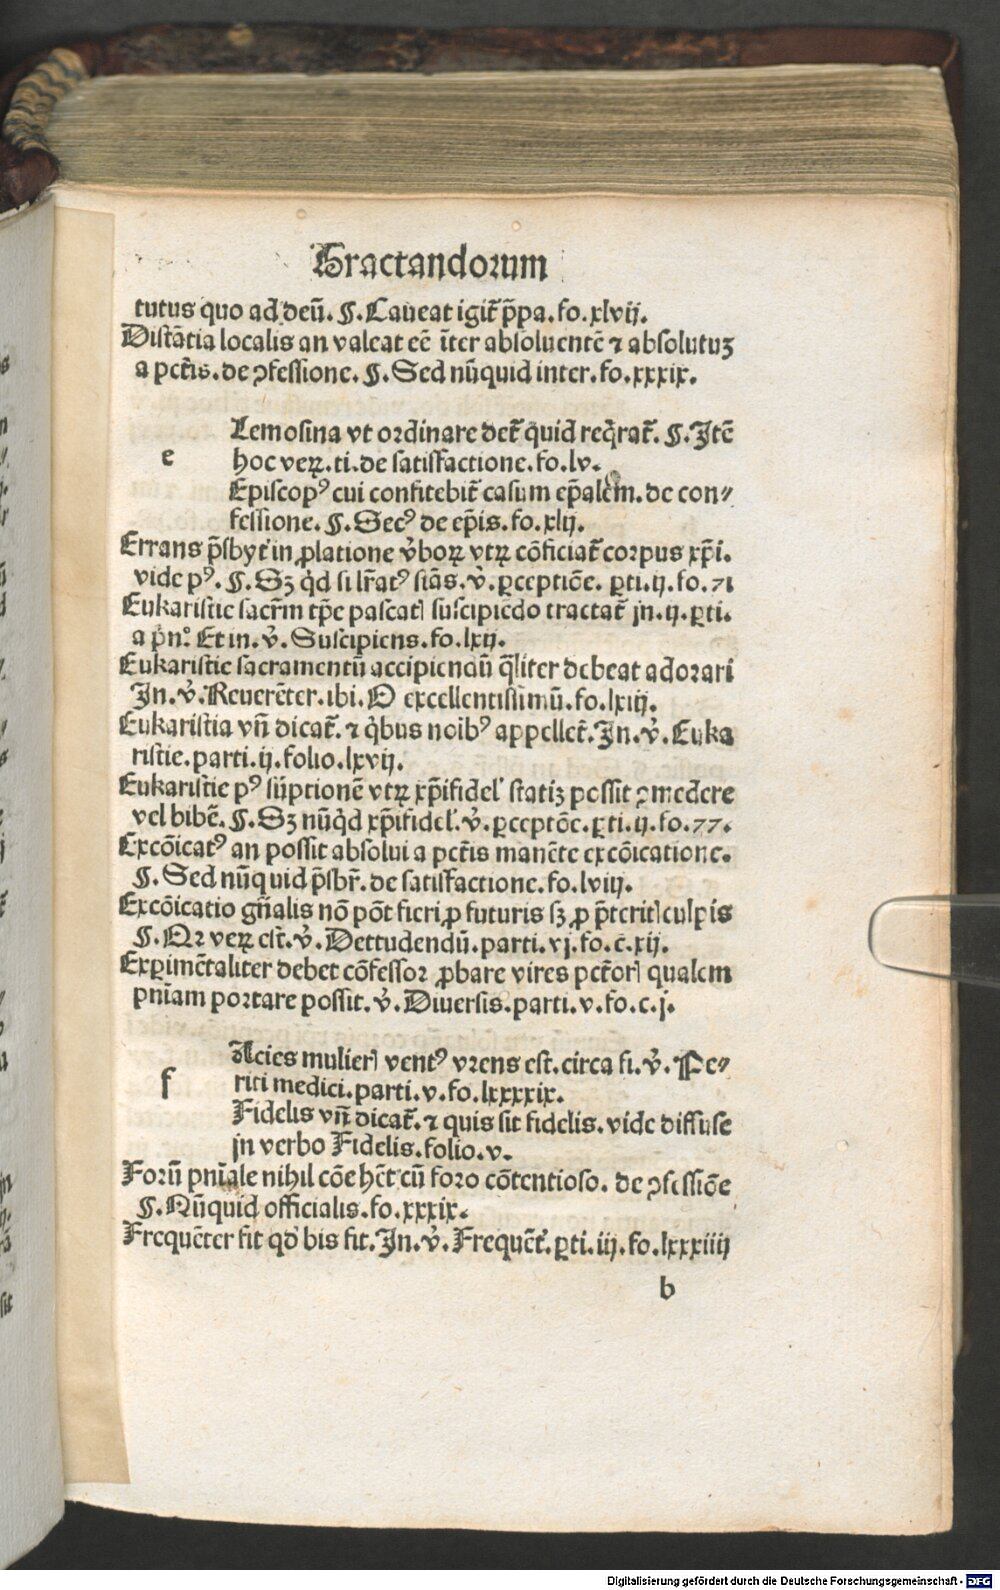 Tractandorum
tutus quo ad deū. ¶. Caueat igit̄ p̄pa. fo. xlvij.
Distātia localis an valeat eē īter absoluentē ⁊ absolutuꝫ
a pct̄is. de ꝯfessione. ¶. Sed nūquid inter. fo. xxxix.
Lemosina vt ordinare det̄ quid reqͥrat̄. ¶. Itē
e
hoc veꝝ. ti. de satisfactione. fo. lv.
Episcopꝰ cui confitebit̄ casum ep̄alem. de con⸗
fessione. ¶. Secꝰ de ep̄is. fo. xlij.
Errans p̄sbyt̄ in ꝓlatione v̓boꝝ vtꝝ cōficiat̄ corpus xp̄i.
vide pꝰ. ¶. Sꝫ qd̓ si lr̄atꝰ siās. v̓. ꝑceptiōe. ꝑti. ij. fo. 71
Eukaristie sacr̄m tp̄e pascatꝭ suscipiēdo tractat̄ jn. ij. ꝑti.
a pn̄º Et in. v̓. Suscipiens. fo. lxij.
Eukaristie sacramentū accipiendū q̄liter debeat adorari
In. v̓. Reuerēter. ibi. O excellentissimū. fo. lxiij.
Eukaristia vn̄ dicat̄. ⁊ qͥbus noibꝰ appellet̄. In. v̓. Euka
ristie. parti. ij. folio. lxvij.
Eukaristie pꝰ sūptionē vtꝝ xp̄ifidel̓ statiꝫ possit ꝯmedere
vel bibē. ¶. Sꝫ nūqͥd xp̄ifidel̓. v̓. ꝑceptōe. ꝑti. ij. fo. 77.
Excōicatꝰ an possit absolui a pct̄is manēte excōicatione.
¶. Sed nūquid p̄sbr̄. de satisfactione. fo. lviij.
Excōicatio gn̄alis nō pōt fieri ꝓ futuris sꝫ ꝓ p̄teritꝭ culpis
¶. Qꝛ veꝝ est. v̓. Dettudendū. parti. vj. fo. c. xij.
Exꝑimētaliter debet cōfessor ꝓbare vires pct̄orꝭ qualem
pn̄iam portare possit. v̓. Diuersis. parti. v. fo. c. j.
Acies mulierꝭ ventꝰ vrens est. circa fi. v̓. Pe⸗
f
riti medici. parti. v. fo. lxxxxix.
Fidelis vn̄ dicat̄. ⁊ quis sit fidelis. vide diffuse
jn verbo Fidelis. folio. v.
Forū pn̄iale nihil cōe hēt cū foro cōtentioso. de ꝯfessiōe
¶. Nūquid officialis. fo. xxxix.
Frequēter fit qd̓ bis fit. In. v̓. Frequēt̄. ꝑti. iij. fo. lxxxiiij
b
Digitalisierung gefördert durch die Deutsche Forschungsgemeinschaft - DFG